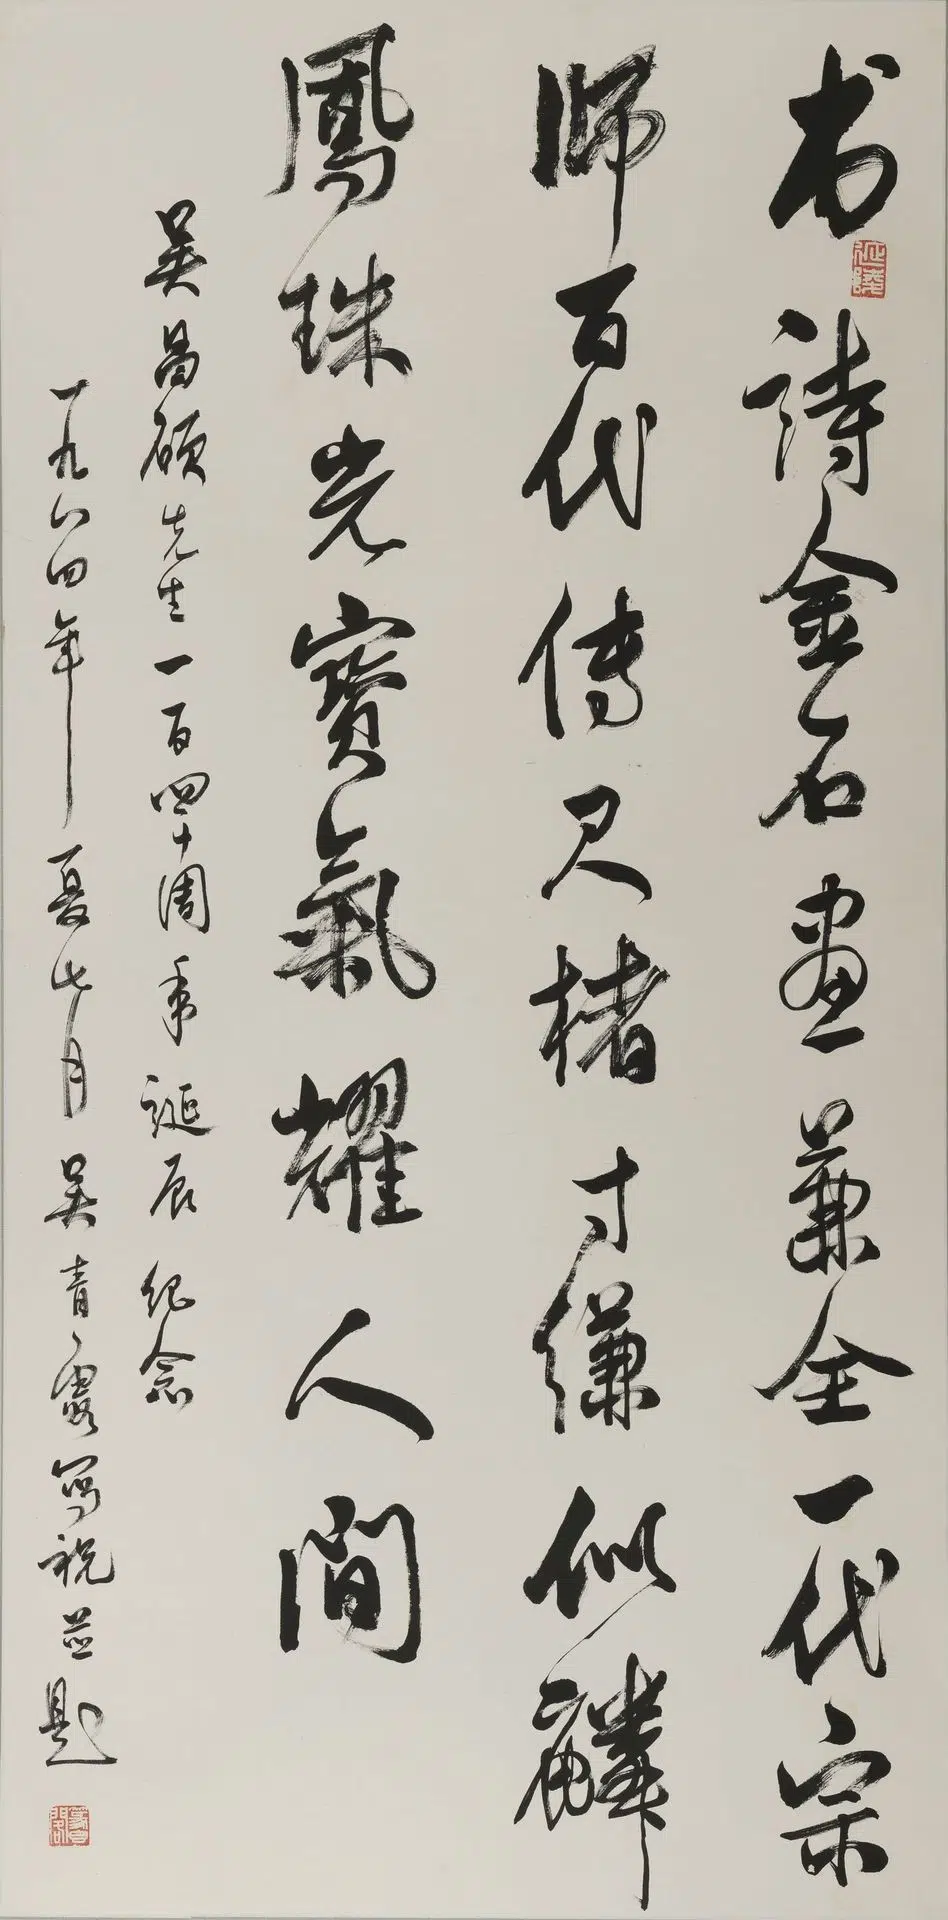 书詩金石畫兼全一代宗
師百代傳尺楮寸縑似麟
鳳珠光寶氣耀人間
吴昌碩先生一百四十周年誕辰纪念
一九八四年夏七月吴青霞寫祝並題
延陵
篆香閣